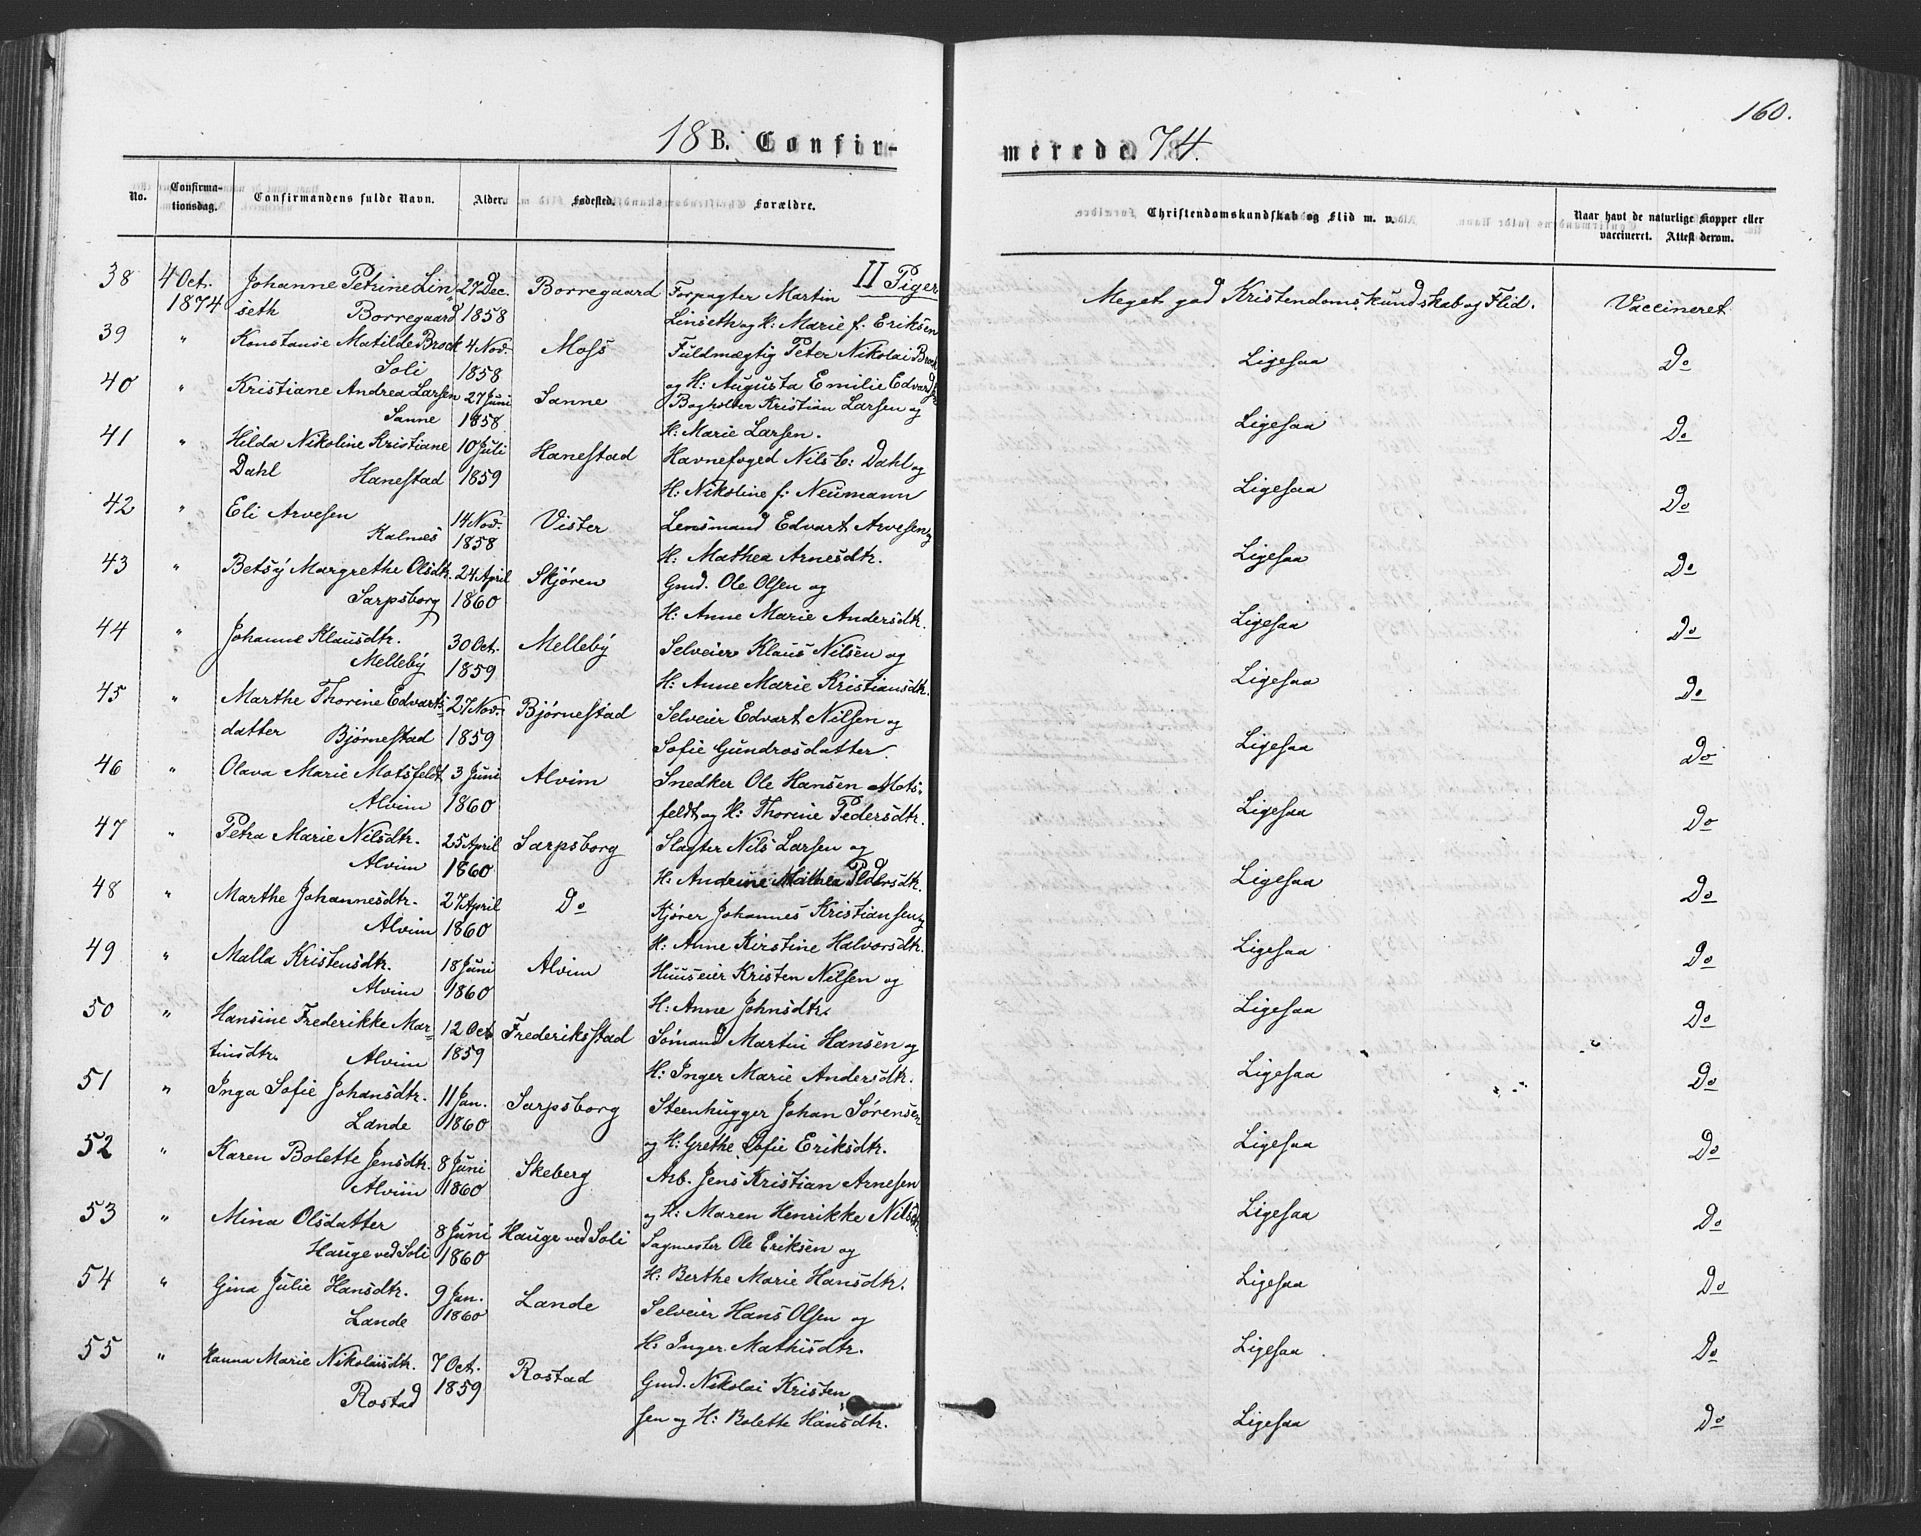 160.
18 B. Confir-
merede. 74.
No. Confirma-tionsdag. Confirmandens fulde Navn. Alder. Fødested. Forældre. Christendomskundskab og Flid m. v. Naar havt de naturlige Kopper eller vaccineret. Attest derom.
II Piger
38 4 Oct. Johanne Petrine Lin- 27 Dec. Borregaard Forpagter Martin Meget god Kristendomskundskab og Flid. Vaccineret
1874 seth Borregaard 1858 Linseth og H: Marie f. Eriksen
39 " Konstanse Matilde Brock 4 Nov. Moss Fuldmægtig Peter Nikolai Brock Ligesaa Do
Soli 1858 og H: Augusta Emilie Edvardsen
40 " Kristiane Andrea Larsen 27 Juni Sanne Bogholder Kristian Larsen og Ligesaa Do
Sanne 1858 H: Marie Larsen.
41 " Hilda Nikoline Kristiane 10 Juli Hanestad Havnefoged Nils C: Dahl og Ligesaa Do
Dahl Hanestad 1859 H: Nikoline f: Neumann
42 " Eli Arvesen 14 Nov. Vister Lensmand Edvart Arvesen og Ligesaa Do
Kalnes 1858 H: Mathea Arnesdtr.
43 " Betsy Margrethe Olsdtr. 24 April Skjøren Gmd. Ole Olsen og Ligesaa Do
Sarpsborg 1860 H: Anne Marie Andersdtr.
44 " Johanne Klausdtr. 30 Oct. Melleby Selveier Klaus Nilsen og Ligesaa Do
Melleby 1859 H: Anne Marie Kristiansdtr.
45 " Marthe Thorine Edvarts- 27 Nov. Bjørnestad Selveier Edvart Nilsen og Ligesaa Do
datter Bjørnestad 1859 Sofie Gundrosdatter
46 " Olava Marie Motsfeldt 3 Juni Alvim Snedker Ole Hansen Mots- Ligesaa Do
Alvim 1860 feldt og H: Thorine Pedersdtr.
47 " Petra Marie Nilsdtr. 25 April Sarpsborg Slagter Nils Larsen og Ligesaa Do
Alvim 1860 H: Andrine Mathea Pedersdtr.
48 " Marthe Johannesdtr. 27 April Do Kjører Johannes Kristiansen og Ligesaa Do
Alvim 1860 H: Anne Kirstine Halvorsdtr.
49 " Malla Kristensdtr. 18 Juni Alvim Huuseier Kristen Nilsen og Ligesaa Do
Alvim 1860 H: Anne Johnsdtr.
50 " Hansine Frederikke Mar- 12 Oct Frederiksstad Sømand Martin Hansen og Ligesaa Do
tinsdtr. Alvim 1859 H: Inger Marie Andersdtr.
51 " Inga Sofie Johansdtr. 11 Jan. Sarpsborg Steenhugger Johan Sørensen Ligesaa Do
Lande 1860 og H: Grethe Sofie Eriksdtr.
52 " Karen Bolette Jensdtr. 8 Juni Skeberg Arb. Jens Kristian Arnesen Ligesaa Do
Alvim 1860 og H: Maren Henrikke Nilsdtr
53 " Mina Olsdatter 8 Juni Hauge ved Soli Sagmester Ole Eriksen og Ligesaa Do
Hauge ved Soli 1860 H: Berthe Marie Hansdtr.
54 " Gina Julie Hansdtr. 9 Jan. Lande Selveier Hans Olsen og Ligesaa Do
Lande 1860 H: Inger Mathisdtr.
55 " Hanna Marie Nikolaisdtr. 7 Oct. Rostad Gmd. Nikolai Kristen Ligesaa Do
Rostad 1859 sen og H: Bolette Hansdtr. Ligesaa Do